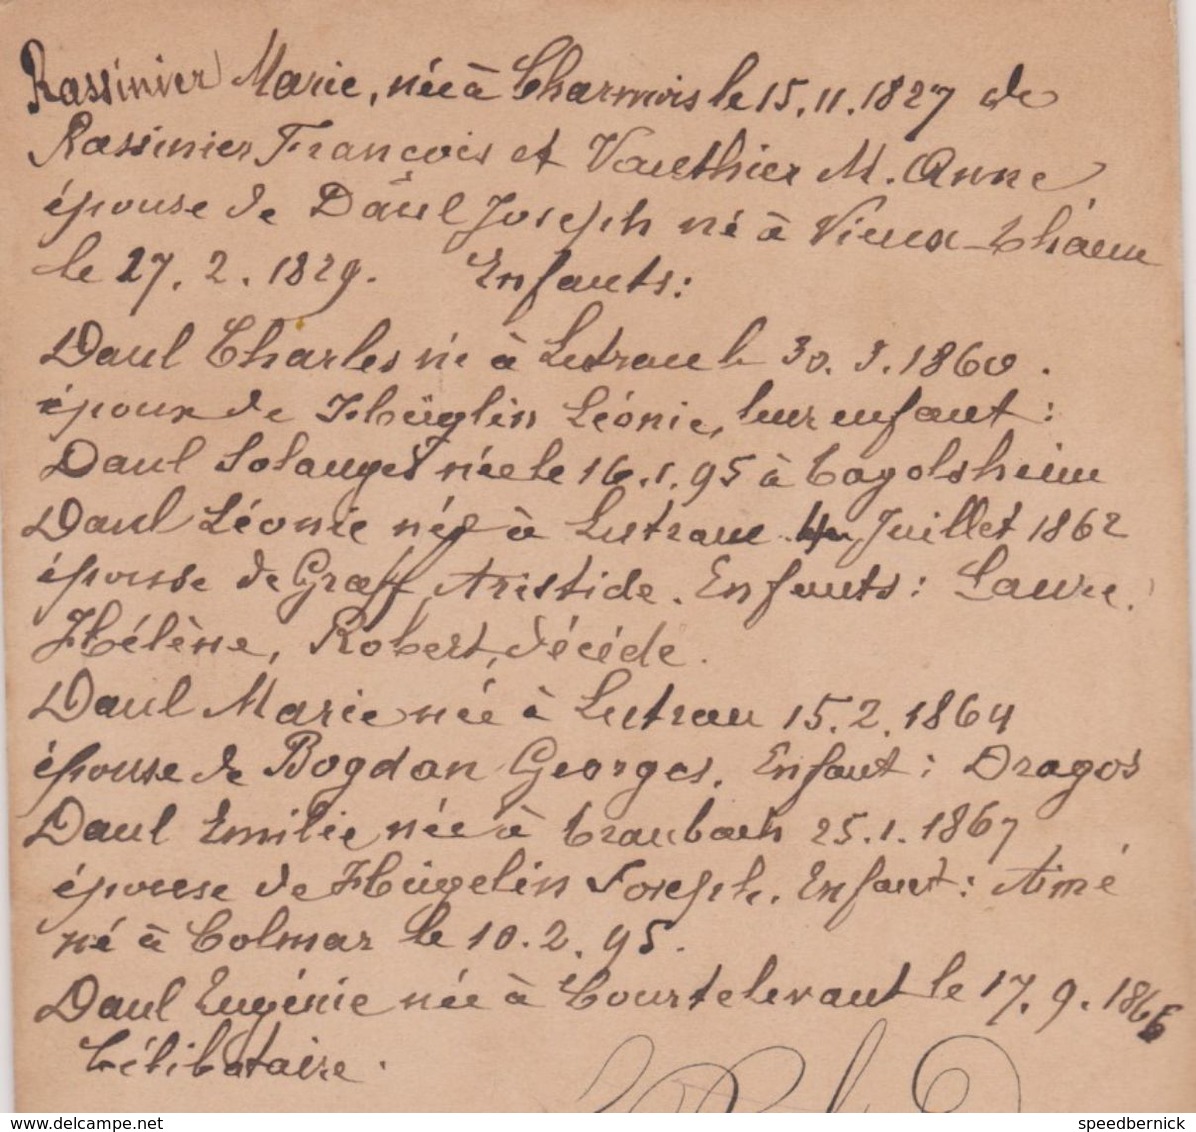 Rassinier Marie, née à Charmois le 15.11.1827 de
Rassinier François et Vauthier M. Anne
épouse de Daul Joseph né à Vieux-Tháun
le 27.2.1829. Enfants:
Daul Charles né à Lutrau le 30. 3. 1860.
époux de Hüglin Léonie, leur enfant:
Daul Solanges née le 16.1.95 à Tagolsheim
Daul Léonie née à Lutrau 4 Juillet 1862
épouse de Graff Aristide. Enfants: Laure,
Hélène, Robert, décédé.
Daul Marie née à Lutrau 15.2.1864
épouse de Bogdan Georges. Enfant: Dragos
Daul Emilie née à Traubach 25.1.1867
épouse de Hügelin Joseph. Enfant: Aimé
né à Colmar le 10.2.95.
Daul Eugénie née à Courtelevant le 17.9.1866
Célibataire.
speedbernick